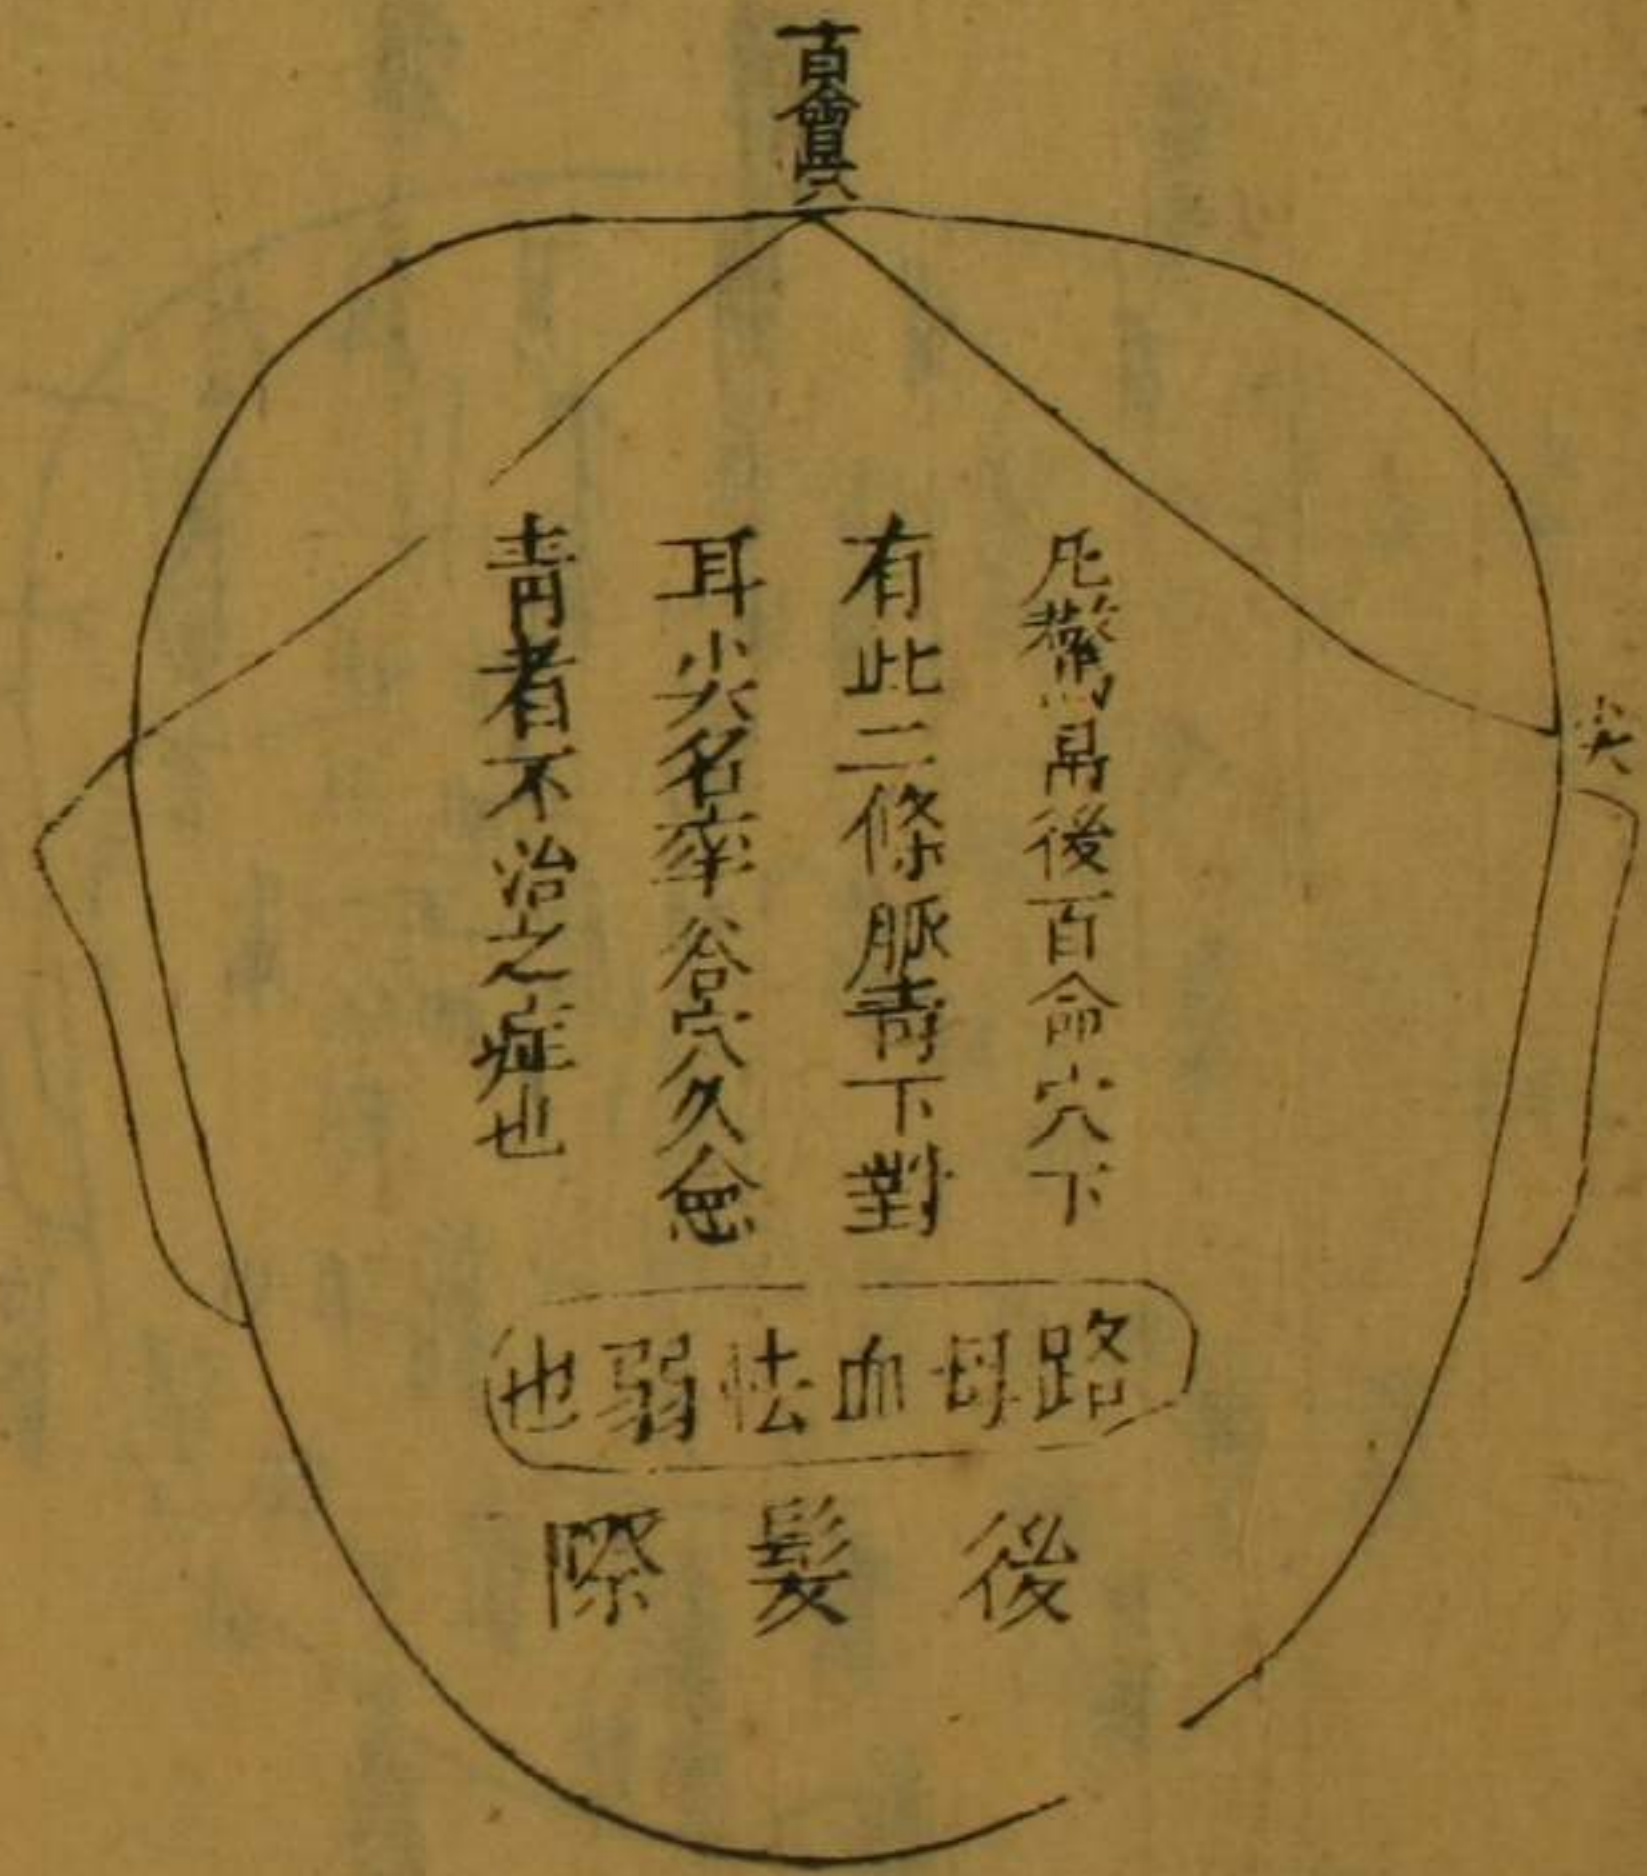 百會穴
尖
凡驚風後百命穴下
有此二條脈青下對
耳尖名率谷穴久愈
青者不治之症也
路母血怯弱也
後髮際